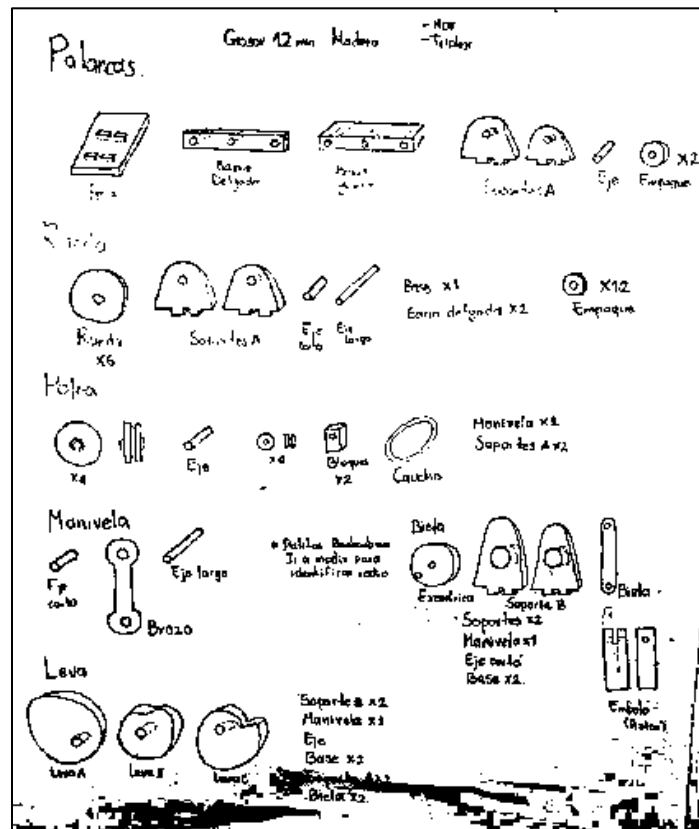 Palancas.
Grosor 12 mm Madera
- MDF
- Triplex
Barra
Delgada
Soportes A
Eje
Empaque
x2
Rueda
x6
Soportes A
Eje
corto
Eje
largo
Base x1
Barra delgada x2
x12
Empaque
Polea
x4
Eje
x4
Bloque
x2
Caucho
Manivela x1
Soportes A x2
Manivela
Eje
corto
Brazo
Eje largo
Ir a medir para
identificar radio
Biela
Excéntrica
Soporte B
Biela
Soportes x2
Manivela x1
Eje corto
Base x2
Embolo
Leva
Leva A
Leva B
Leva C
Soporte B x2
Manivela x1
Eje
Base x2
Biela x2